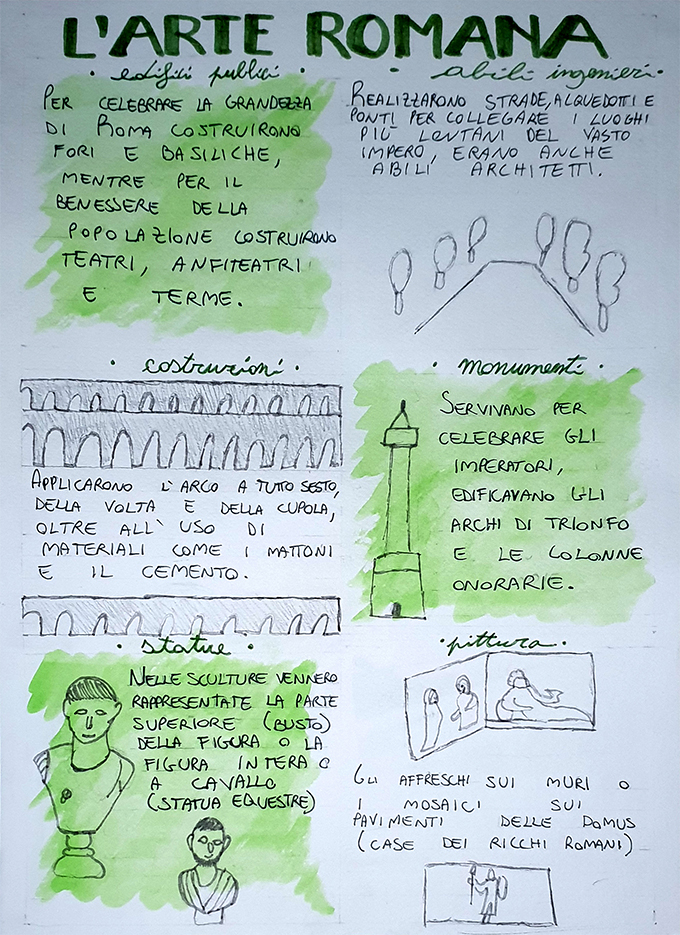 L'ARTE ROMANA
· edifici pubblici ·
PER CELEBRARE LA GRANDEZZA
DI ROMA COSTRUIRONO
FORI E BASILICHE,
MENTRE PER IL
BENESSERE DELLA
POPOLAZIONE COSTRUIRONO
TEATRI, ANFITEATRI
E TERME.
· abili ingenieri ·
REALIZZARONO STRADE, ACQUEDOTTI E
PONTI PER COLLEGARE I LUOGHI
PIÙ LONTANI DEL VASTO
IMPERO, ERANO ANCHE
ABILI ARCHITETTI.
· costruzioni ·
APPLICARONO L'ARCO A TUTTO SESTO,
DELLA VOLTA E DELLA CUPOLA,
OLTRE ALL'USO DI
MATERIALI COME I MATTONI
E IL CEMENTO.
· monumenti ·
SERVIVANO PER
CELEBRARE GLI
IMPERATORI,
EDIFICAVANO GLI
ARCHI DI TRIONFO
E LE COLONNE
ONORARIE.
· statue ·
NELLE SCULTURE VENNERO
RAPPRESENTATE LA PARTE
SUPERIORE (BUSTO)
DELLA FIGURA O LA
FIGURA INTERA O
A CAVALLO
(STATUA EQUESTRE)
· pittura ·
GLI AFFRESCHI SUI MURI O
I MOSAICI SUI
PAVIMENTI DELLE DOMUS
(CASE DEI RICCHI ROMANI)